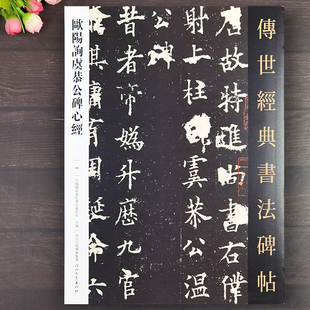 傳世經典書法碑帖
唐故特進尚書右僕
射上柱國虞恭公溫
公碑
昔者帝媯升歷九官
命六
歐陽詢虞恭公碑心經